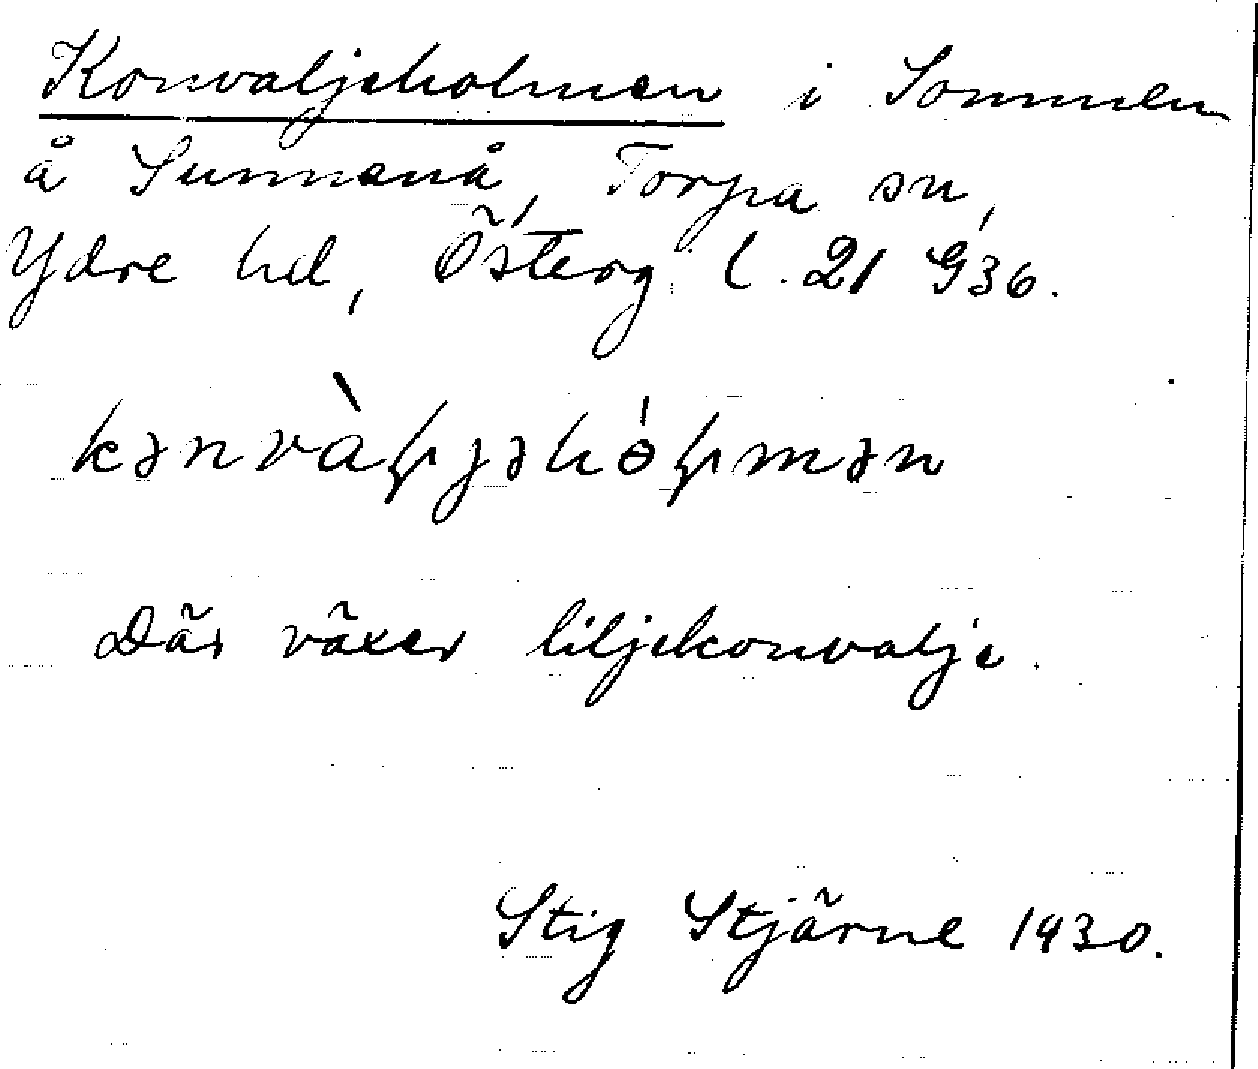 Konvaljeholmen i Sommen
å Sunnanå, Torpa sn,
Ydre hd, Österg. l. 21 G36.
kənvàļjəhóļmən
Där växer liljekonvalje.
Stig Stjärne 1930.